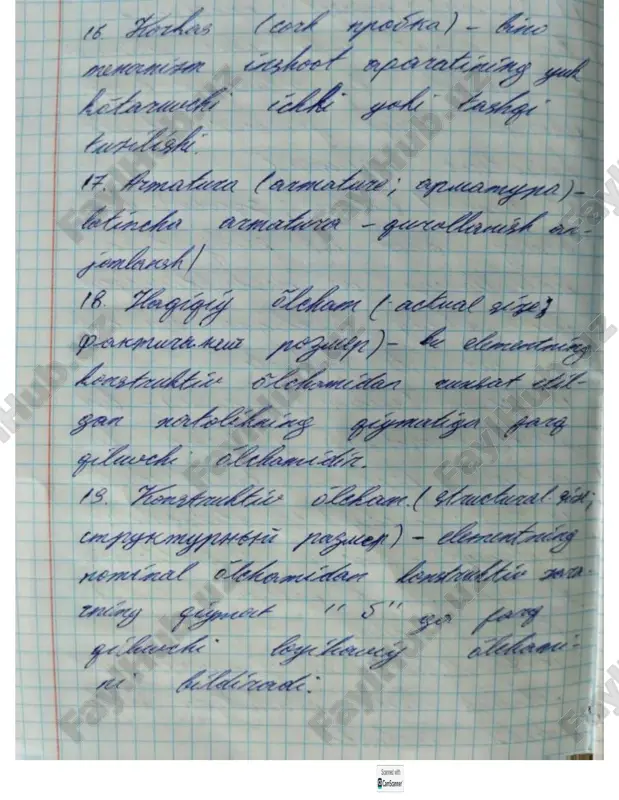 16. Korkas (cork пробка) – bino
mexanizm inshoot aparatining yuk
kótaruvchi ichki yoki tashqi
tuzilishi.
17. Armatura (armature; арматура) –
lotincha armatura – qurollanish an-
jomlansh)
18. Haqiqiy ólcham (actual size;
фактический розмер) – bu elementning
konstruktiv ólchamidan ruxsat etil-
gan xatolikning qiymatiga farq
qiluvchi ólchamidir.
19. Konstruktiv ólcham. (structural size;
структурный размер) – elementning
nominal ólchamidan konstruktiv
qiymat "S" ga farq
qiluvchi loyihaviy ólchami-
ni bildiradi.
FayllHub.uz
Scanned with
CamScanner